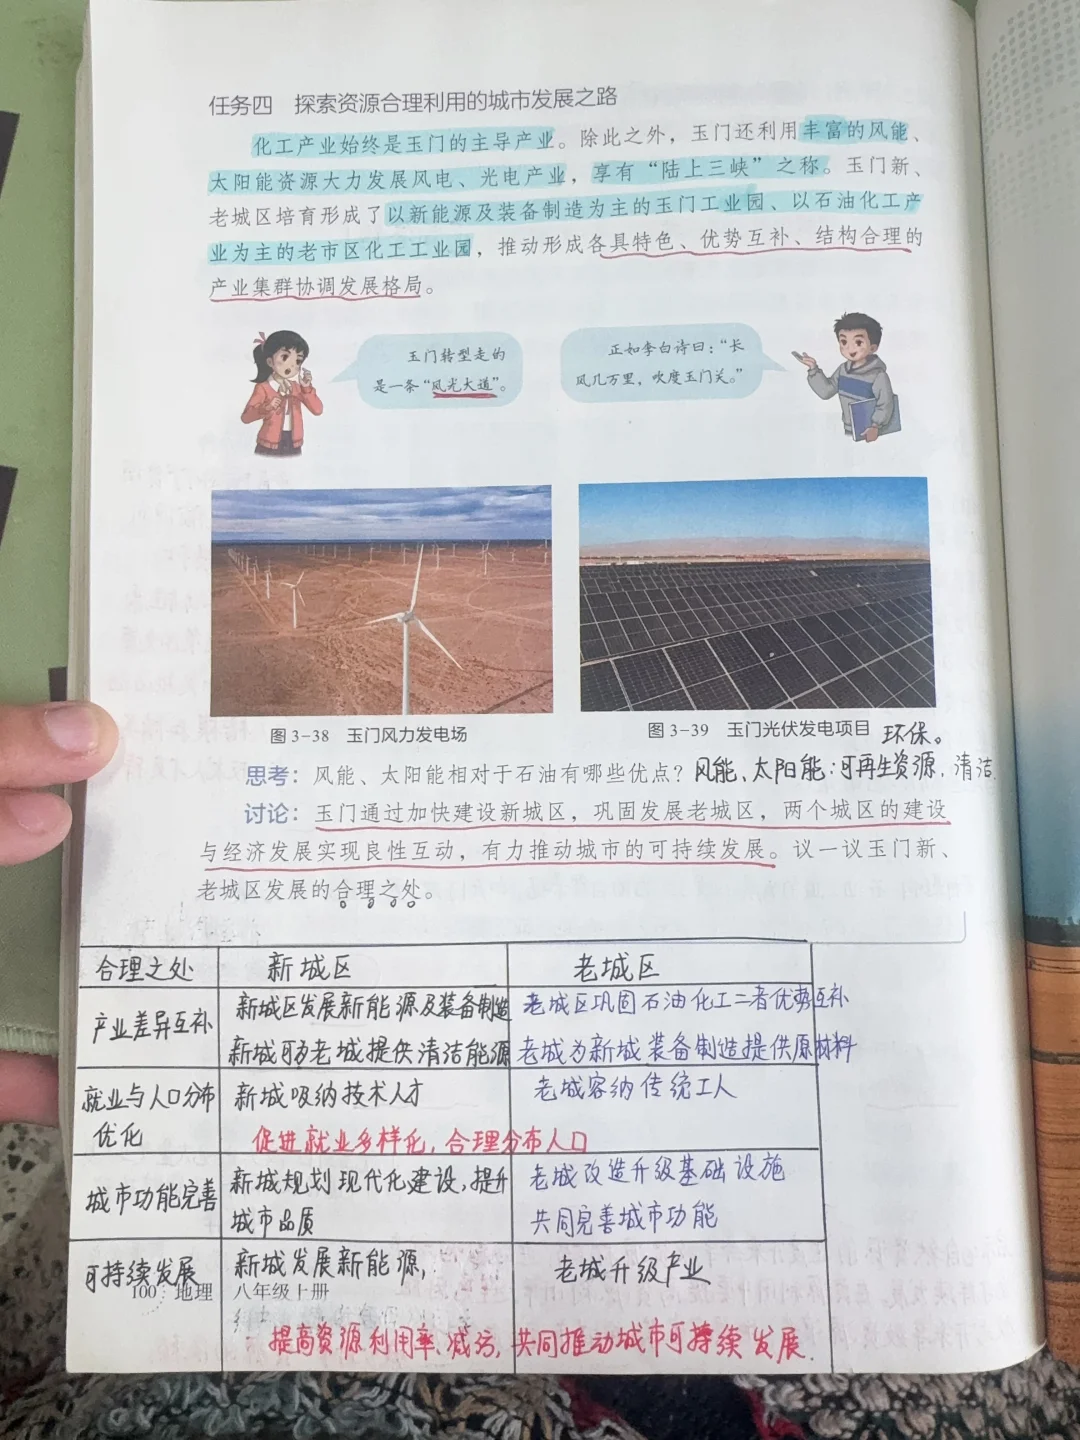 任务四 探索资源合理利用的城市发展之路
化工产业始终是玉门的主导产业。除此之外，玉门还利用丰富的风能、
太阳能资源大力发展风电、光电产业，享有“陆上三峡”之称。玉门新、
老城区培育形成了以新能源及装备制造为主的玉门工业园、以石油化工产
业为主的老市区化工工业园，推动形成各具特色、优势互补、结构合理的
产业集群协调发展格局。
玉门转型走的
是一条“风光大道”。
正如李白诗曰：“长
风几万里，吹度玉门关。”
图3-38 玉门风力发电场
图3-39 玉门光伏发电项目
环保。
思考：风能、太阳能相对于石油有哪些优点？风能、太阳能：可再生资源，清洁
讨论：玉门通过加快建设新城区，巩固发展老城区，两个城区的建设
与经济发展实现良性互动，有力推动城市的可持续发展。议一议玉门新、
老城区发展的合理之处。
合理之处 新城区 老城区
产业差异互补
新城区发展新能源及装备制造 老城区巩固石油化工二者优势互补
新城可为老城提供清洁能源 老城为新城装备制造提供原材料
就业与人口分布
优化
新城吸纳技术人才 老城容纳传统工人
促进就业多样化，合理分布人口
城市功能完善
新城规划现代化建设，提升 老城改造升级基础设施
城市品质 共同完善城市功能
可持续发展 新城发展新能源， 老城升级产业
100 地理 八年级上册
提高资源利用率、减污，共同推动城市可持续发展.